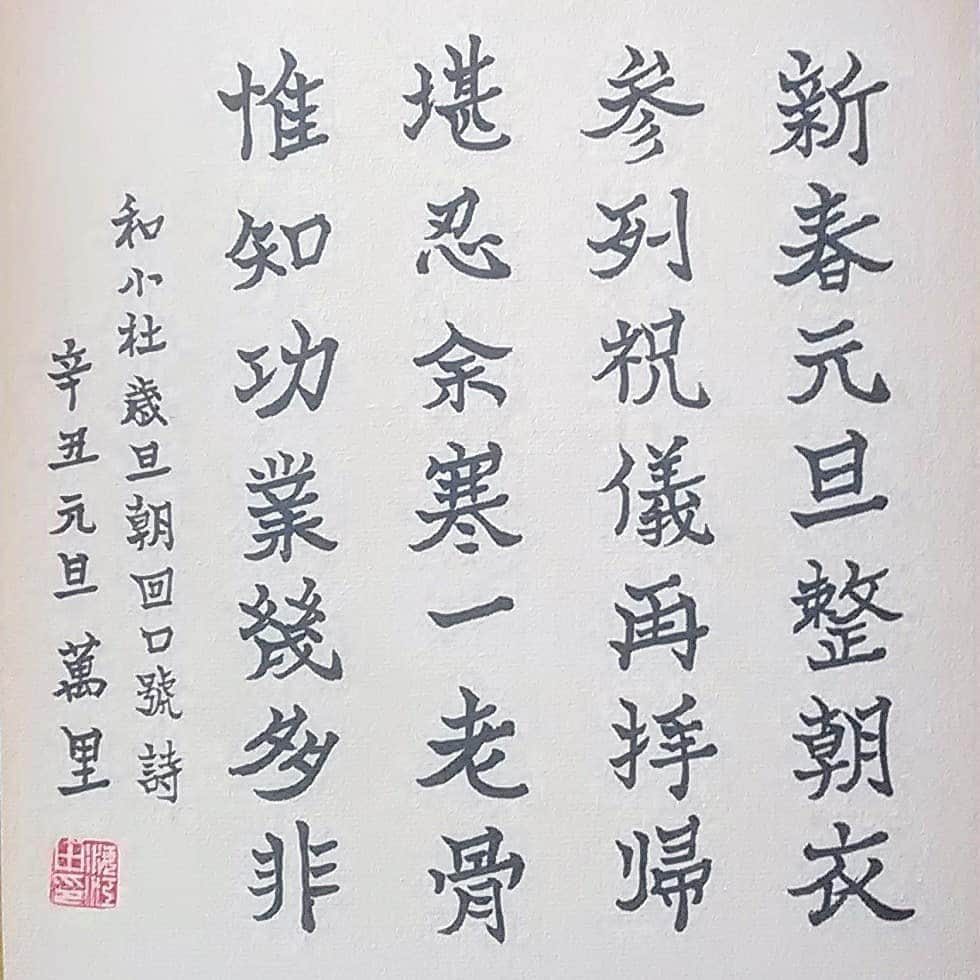 新春元旦整朝衣
参列祝儀再拝帰
堪忍余寒一老骨
惟知功業幾多非
和小杜歳旦朝回口號詩
辛丑元旦 萬里